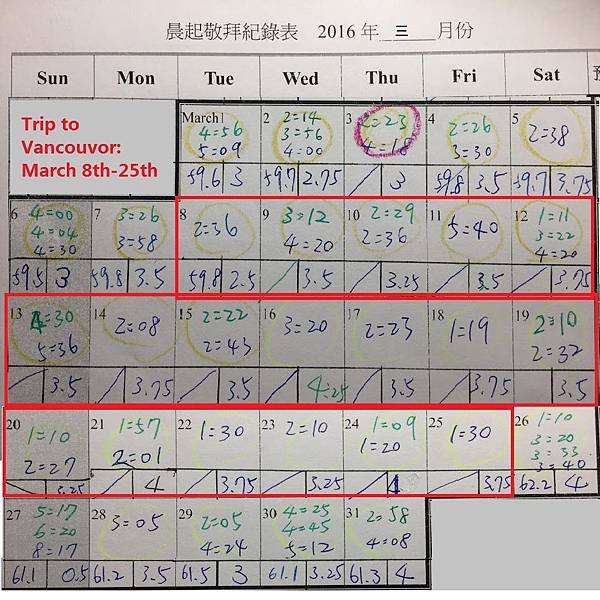 晨起敬拜紀錄表 2016年 三 月份
Sun Mon Tue Wed Thu Fri Sat
Trip to
Vancouvor:
March 8th-25th
March1 2 3 4 5
4=56 2=14 2=23 2=26 2=38
5=09 3=56 4=18 3=30
4=00
59.6 3 59.7 2.75 3 59.8 3.5 59.7 3.75
6 7 8 9 10 11 12
4=00 3=26 2=36 3=12 2=29 5=40 1=11
4=04 3=58 4=20 2=36 3=22
4=30 4=20
59.5 3 59.8 3.5 59.8 2.5 3.5 3.25 3.5 3.75
13 14 15 16 17 18 19
4=30 2=08 2=22 3=20 2=23 1=19 2=10
5=36 2=43 2=32
3.5 3.75 3.5 4.25 3.5 3.75 3.5
20 21 22 23 24 25 26
1=10 1=57 1=30 2=10 1=09 1=30 1=10
2=27 2=01 1=20 3=20
3=33
3=40
3.25 4 3.75 3.25 4 3.75 62.2 4
27 28 29 30 31
5=17 3=05 2=05 4=25 2=58
6=20 4=24 4=45 4=08
8=17 5=12
61.1 0.5 61.2 3.5 61.5 3 61.1 3.25 61.3 4